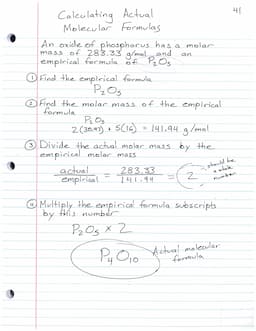 41
Calculating Actual
Molecular Formulas
An oxide of phosphorus has a molar
mass of 283.33 g/mol and an
empirical formula of P₂O₅
① Find the empirical formula
P₂O₅
② Find the molar mass of the empirical
formula
P₂O₅
2(30.97) + 5(16) = 141.94 g/mol
③ Divide the actual molar mass by the
empirical molar mass
actual / empirical = 283.33 / 141.94 = 2 should be a whole number
④ Multiply the empirical formula subscripts
by this number
P₂O₅ × 2
P₄O₁₀ Actual molecular
formula